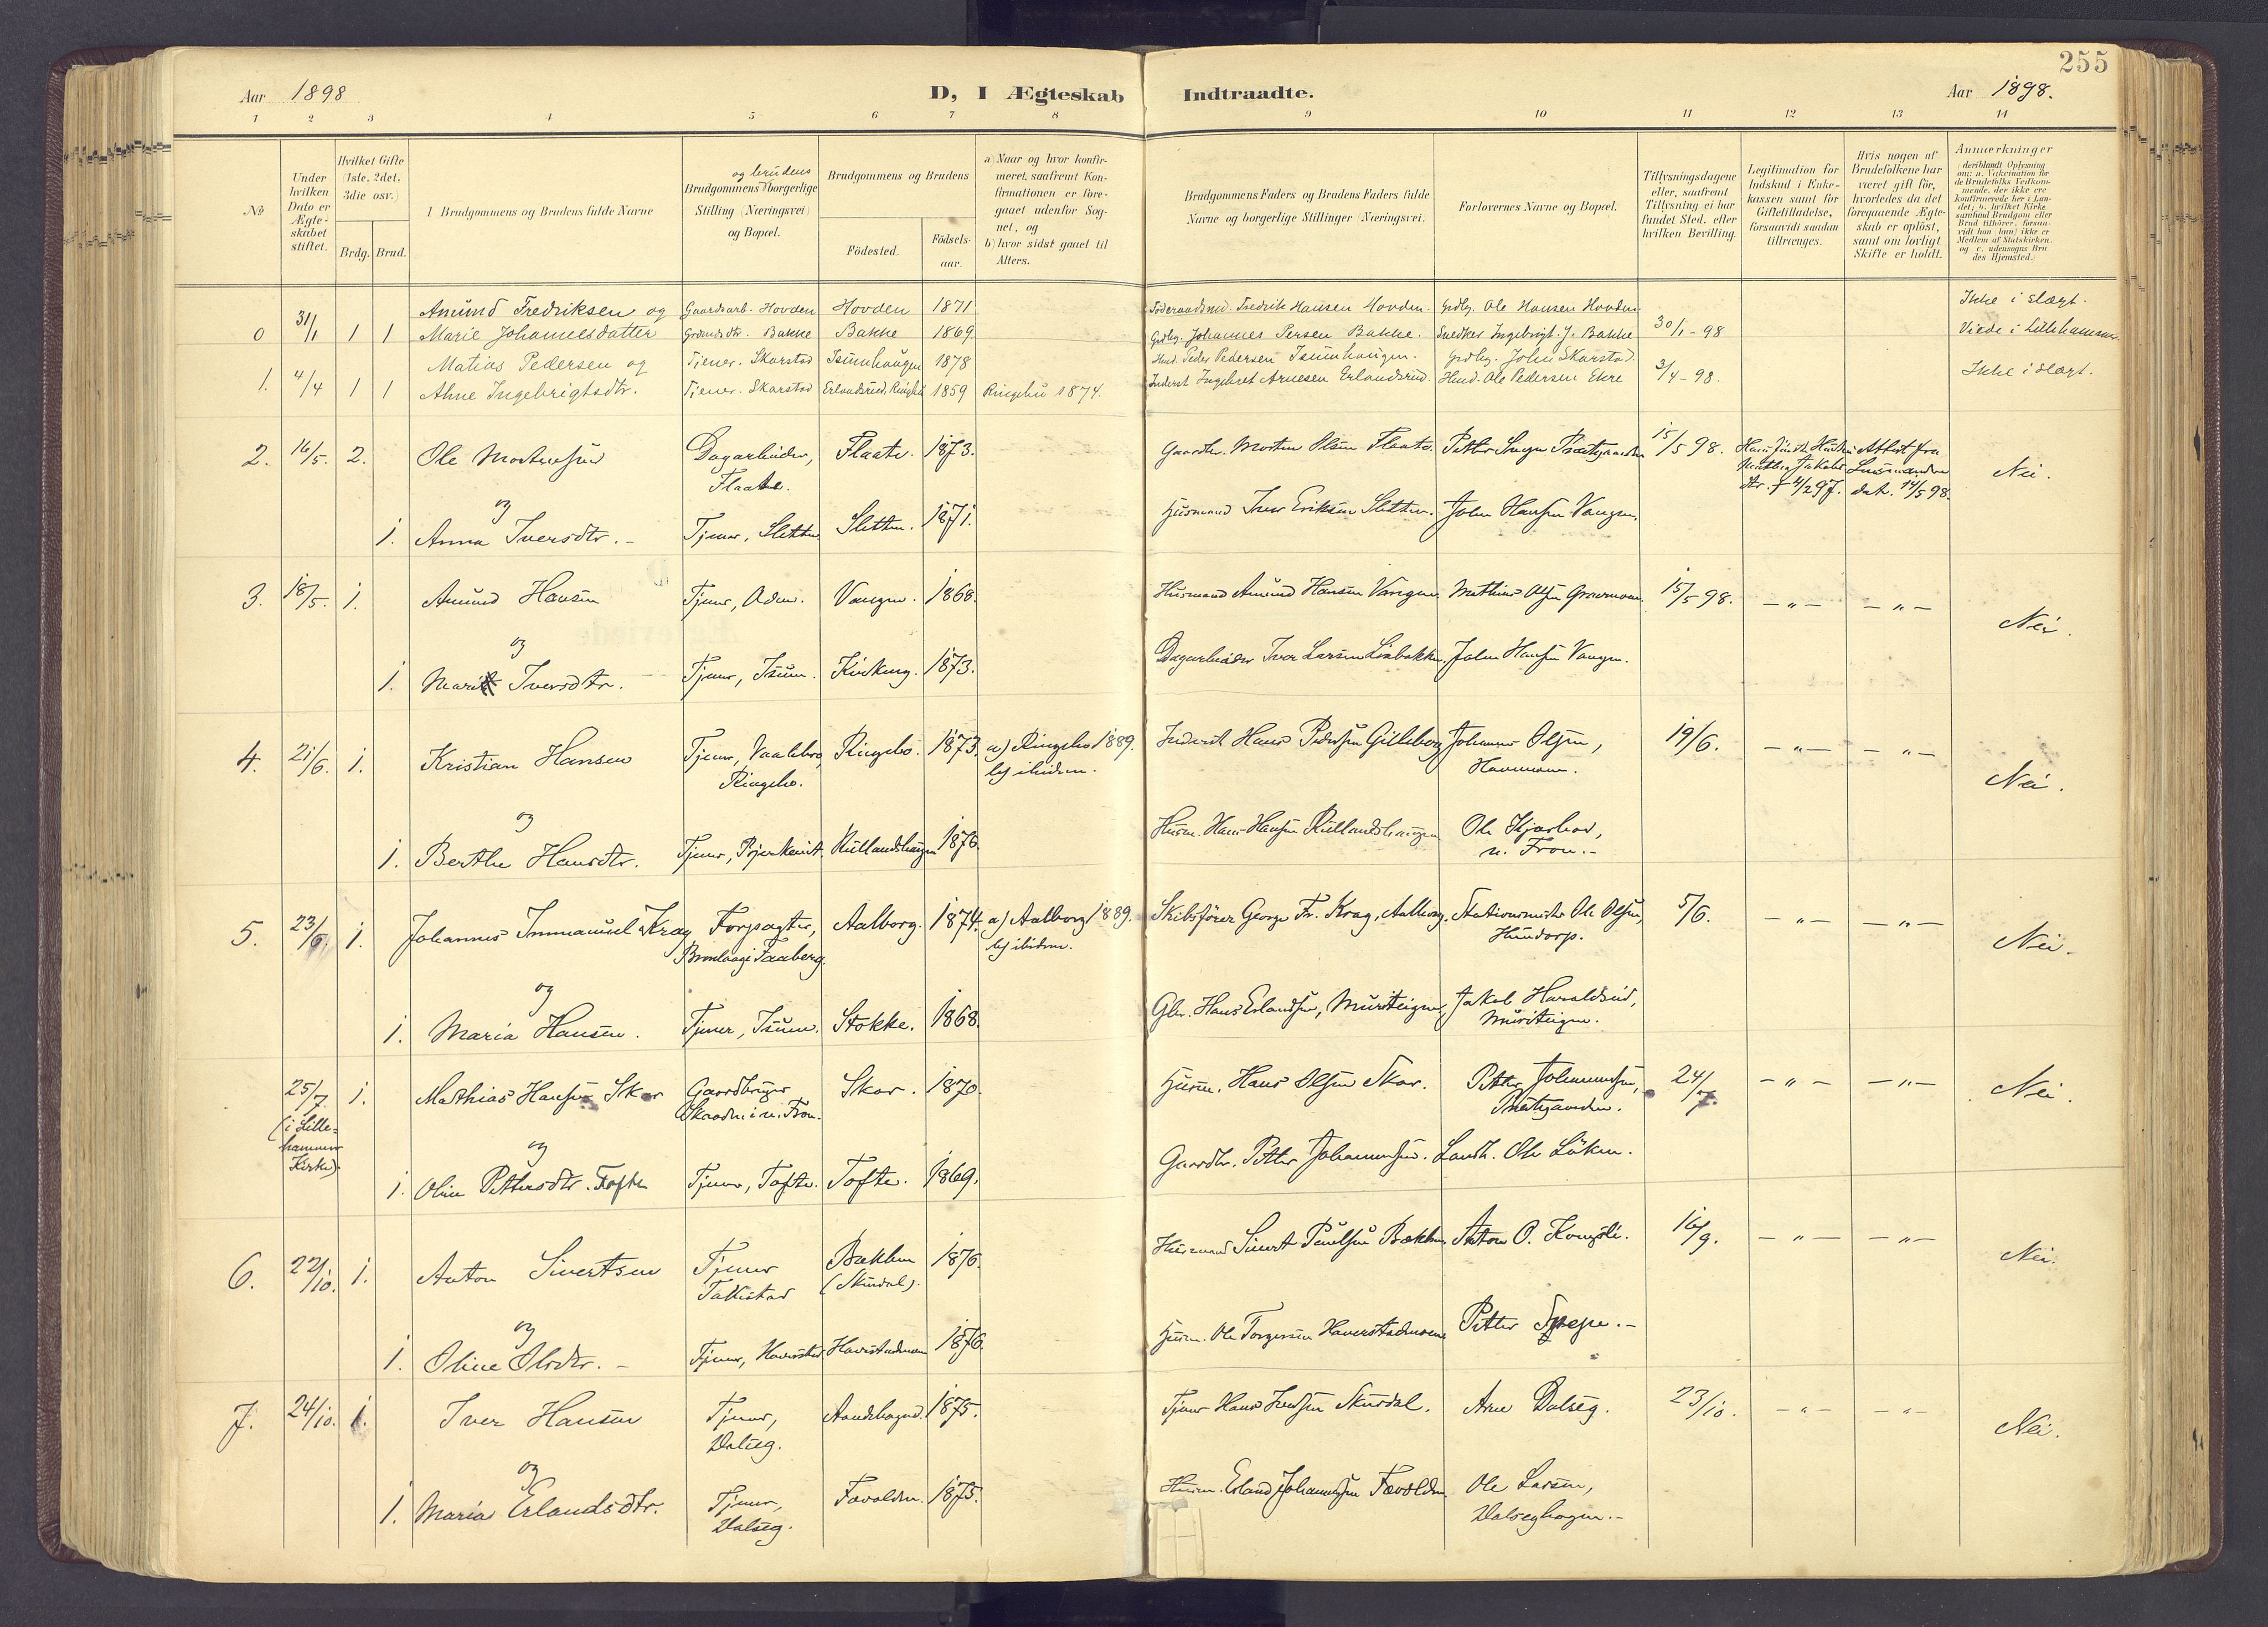 255
Aar 1898
D, I Ægteskab Indtraadte.
Aar 1898.
1 2 3 4 5 6 7 8 9 10 11 12 13 14
No
Under hvilken Dato er Ægteskabet stiftet.
Hvilket Gifte (1ste, 2det, 3die osv.)
Brdg. Brud.
Brudgommens og Brudens fulde Navne
og brudens
Brudgommens borgerlige Stilling (Næringsvei) og Bopæl.
Brudgommens og Brudens
Födested.
Födselsaar.
a) Naar og hvor konfirmeret, saafremt Konfirmationen er foregaaet udenfor Sognet, og
b) hvor sidst gaaet til Alters.
Brudgommens Faders og Brudens Faders fulde Navne og borgerlige Stillinger (Næringsvei).
Forlovernes Navne og Bopæl.
Tillysningsdagene eller, saafremt Tillysning ei har fundet Sted, efter hvilken Bevilling.
Legitimation for Indskud i Enkekassen samt for Giftetilladelse, forsaavidt saadan tiltrænges.
Hvis nogen af Brudefolkene har været gift för, hvorledes da det foregaaende Ægteskab er oplöst, samt om lovligt Skifte er holdt.
Anmærkninger
(deriblandt Oplysning om: a. Vakcination for de Brudefolks Vedkommende, der ikke ere konfirmerede her i Landet; b. hvilket Kirkesamfund Brudgom eller Brud tilhörer, forsaavidt han (hun) ikke er Medlem af Statskirken, og c. udensogns Brudes Hjemsted.)
Amund Fredriksen og Gaardsarb. Hovden Hovden 1871 Föderaadsmd. Fredrik Hansen Hovden. Grdbr. Ole Hansen Hovden Ikke i slægt.
0 31/1 1 1 Marie Johannesdatter Grdmdsdtr. Bakke Bakke 1869. Grdbr. Johannes Persen Bakke. Snedker Ingebrigt J. Bakke 30/1-98 Viede i Lillehammer
Matias Pedersen og Tjener. Skarstad Isumhaugen 1878 Husd. Peder Pedersen Isumhaugen. Grdbr. John Skarstad.
1. 4/4 1 1 Ahne Ingebrigtsdtr. Tjener. Skarstad Erlandsrud, Ringebu 1859 Ringebu 1874. Inderst Ingebret Arnesen Erlandsrud. Husd. Ole Pedersen Ekre 3/4-98. Ikke i slægt.
2. 16/5. 2. Ole Mortensen Dagarbeider, Flaate. Flaate. 1873. Gaardbr. Morten Olsen Flaate. Petter Prestgaarden 15/5 98. Jakobsdtr. † 4/2 97. Attest fra Lensmanden dat. 14/5 98. Nei.
og
1. Anna Iversdtr. Tjener, Sletten Sletten. 1871. Husmand Iver Eriksen Sletten. John Hansen Vangen.
3. 18/5. 1. Amund Hansen Tjener, Aden. Vangen. 1868. Husmand Amund Hansen Vangen. Mathias Olsen 15/5 98. — „ — — „ — Nei.
og
1. Marit Iversdtr. Tjener, Isum. Kirkeng. 1873. Dagarbeider Iver Larsen Liabakken. John Hansen Vangen.
4. 21/6. 1. Kristian Hansen Tjener, Vaalebro, Ringebo. Ringebo. 1873. a) Ringebo 1889. b) ibidem. Inderst Hans Pedersen Gilleborg Johannes Olsen, 19/6. — „ — — „ — Nei.
og
1. Berthe Hansdtr. Tjener, Bjerkeust. Rullandshaugen 1876. Husm. Hans Hansen Rullandshaugen Ole n. Fron.
5. 23/6. 1. Johannes Immanuel Krag Forpagter, Taaberg. Aalborg. 1874. a) Aalborg 1889. b) ibidem. Skibsfører George Fr. Krag, Aalborg. Stationsmester Ole Olsen, Hundorp. 5/6. — „ — — „ — Nei.
og
1. Maria Hansen. Tjener, Isum. Stokke. 1868. Gbr. Hans Erlandsen, Muriteigen, Jakob Haraldsen, Muriteigen.
25/7 (i Lillehammer Kirke). 1. Mathias Hansen Skar Gaardbruger n. Fron. Skar. 1870. Husm. Hans Olsen Skar. Petter Johannessen, Prestgaarden. 24/7. — „ — — „ — Nei.
og
1. Oline Pettersdtr. Tofte Tjener, Tofte. Tofte. 1869. Gaardbr. Petter Johannessen. Landh. Ole Löken.
6. 22/10. 1. Anton Sivertsen Tjener Bakken (Skurdal). 1876. Husmand Sivert Paulsen Bakken Anton O. Kongsli. 16/9. — „ — — „ — Nei.
og
1. Oline Olsdtr. Tjener, Haverstad. Haverstadmoen 1876. Husm. Ole Torgersen Haverstadmoen Petter
7. 24/10. 1. Iver Hansen Tjener, Dalseg. 1875. Tjener Hans Skurdal. Arne Dalseg. 23/10. — „ — — „ — Nei.
og
1. Maria Erlandsdtr. Tjener, Dalseg. Favolden. 1875. Husm. Erland Johannessen Favolden. Ole Larsen, Dalseghagen.